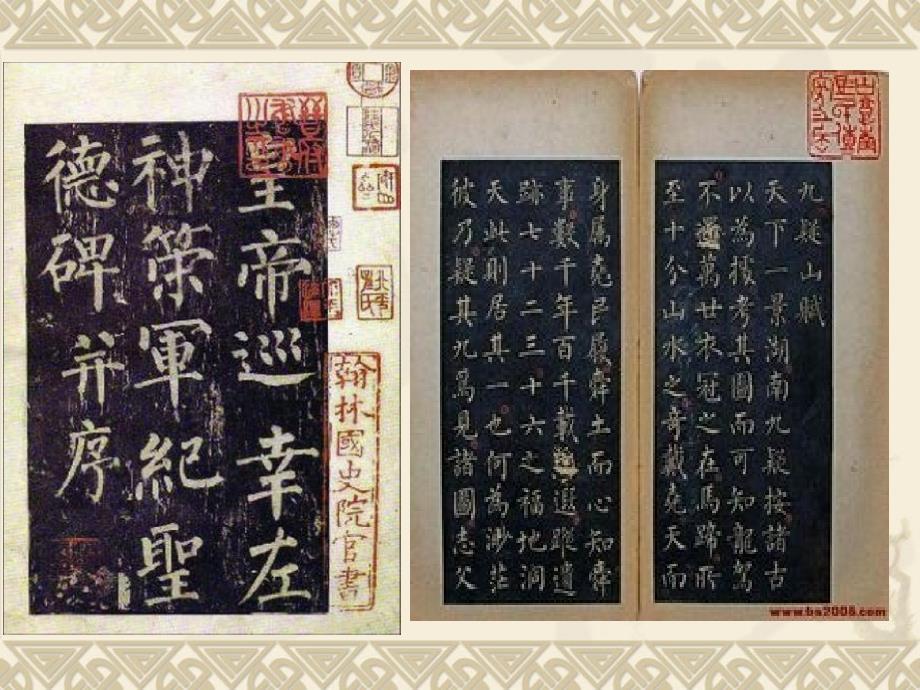 皇帝巡幸左
神策軍紀聖
德碑并序
翰林國史院官書
九疑山賦
天下一景湖南九疑按諸古
以為據考其圖而可知龍駕
不萬世衣冠之在馬蹄所
至十分山水之奇戴堯天而
身屬堯民履舜土而心知舜
事數千年百千載遐蹤遺
跡七十二三十六之福地洞
天此則居其一也何為渺茫
彼乃疑其九焉見諸圖志父